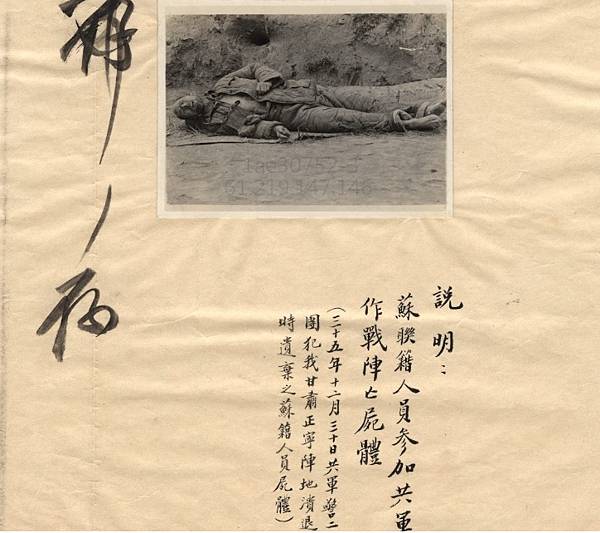 說明：
蘇聯籍人員參加共軍
作戰陣亡屍體
（三十五年十二月三十日共軍警二
團犯我甘肅正寧陣地潰退
時遺棄之蘇籍人員屍體）
61.219.147.146